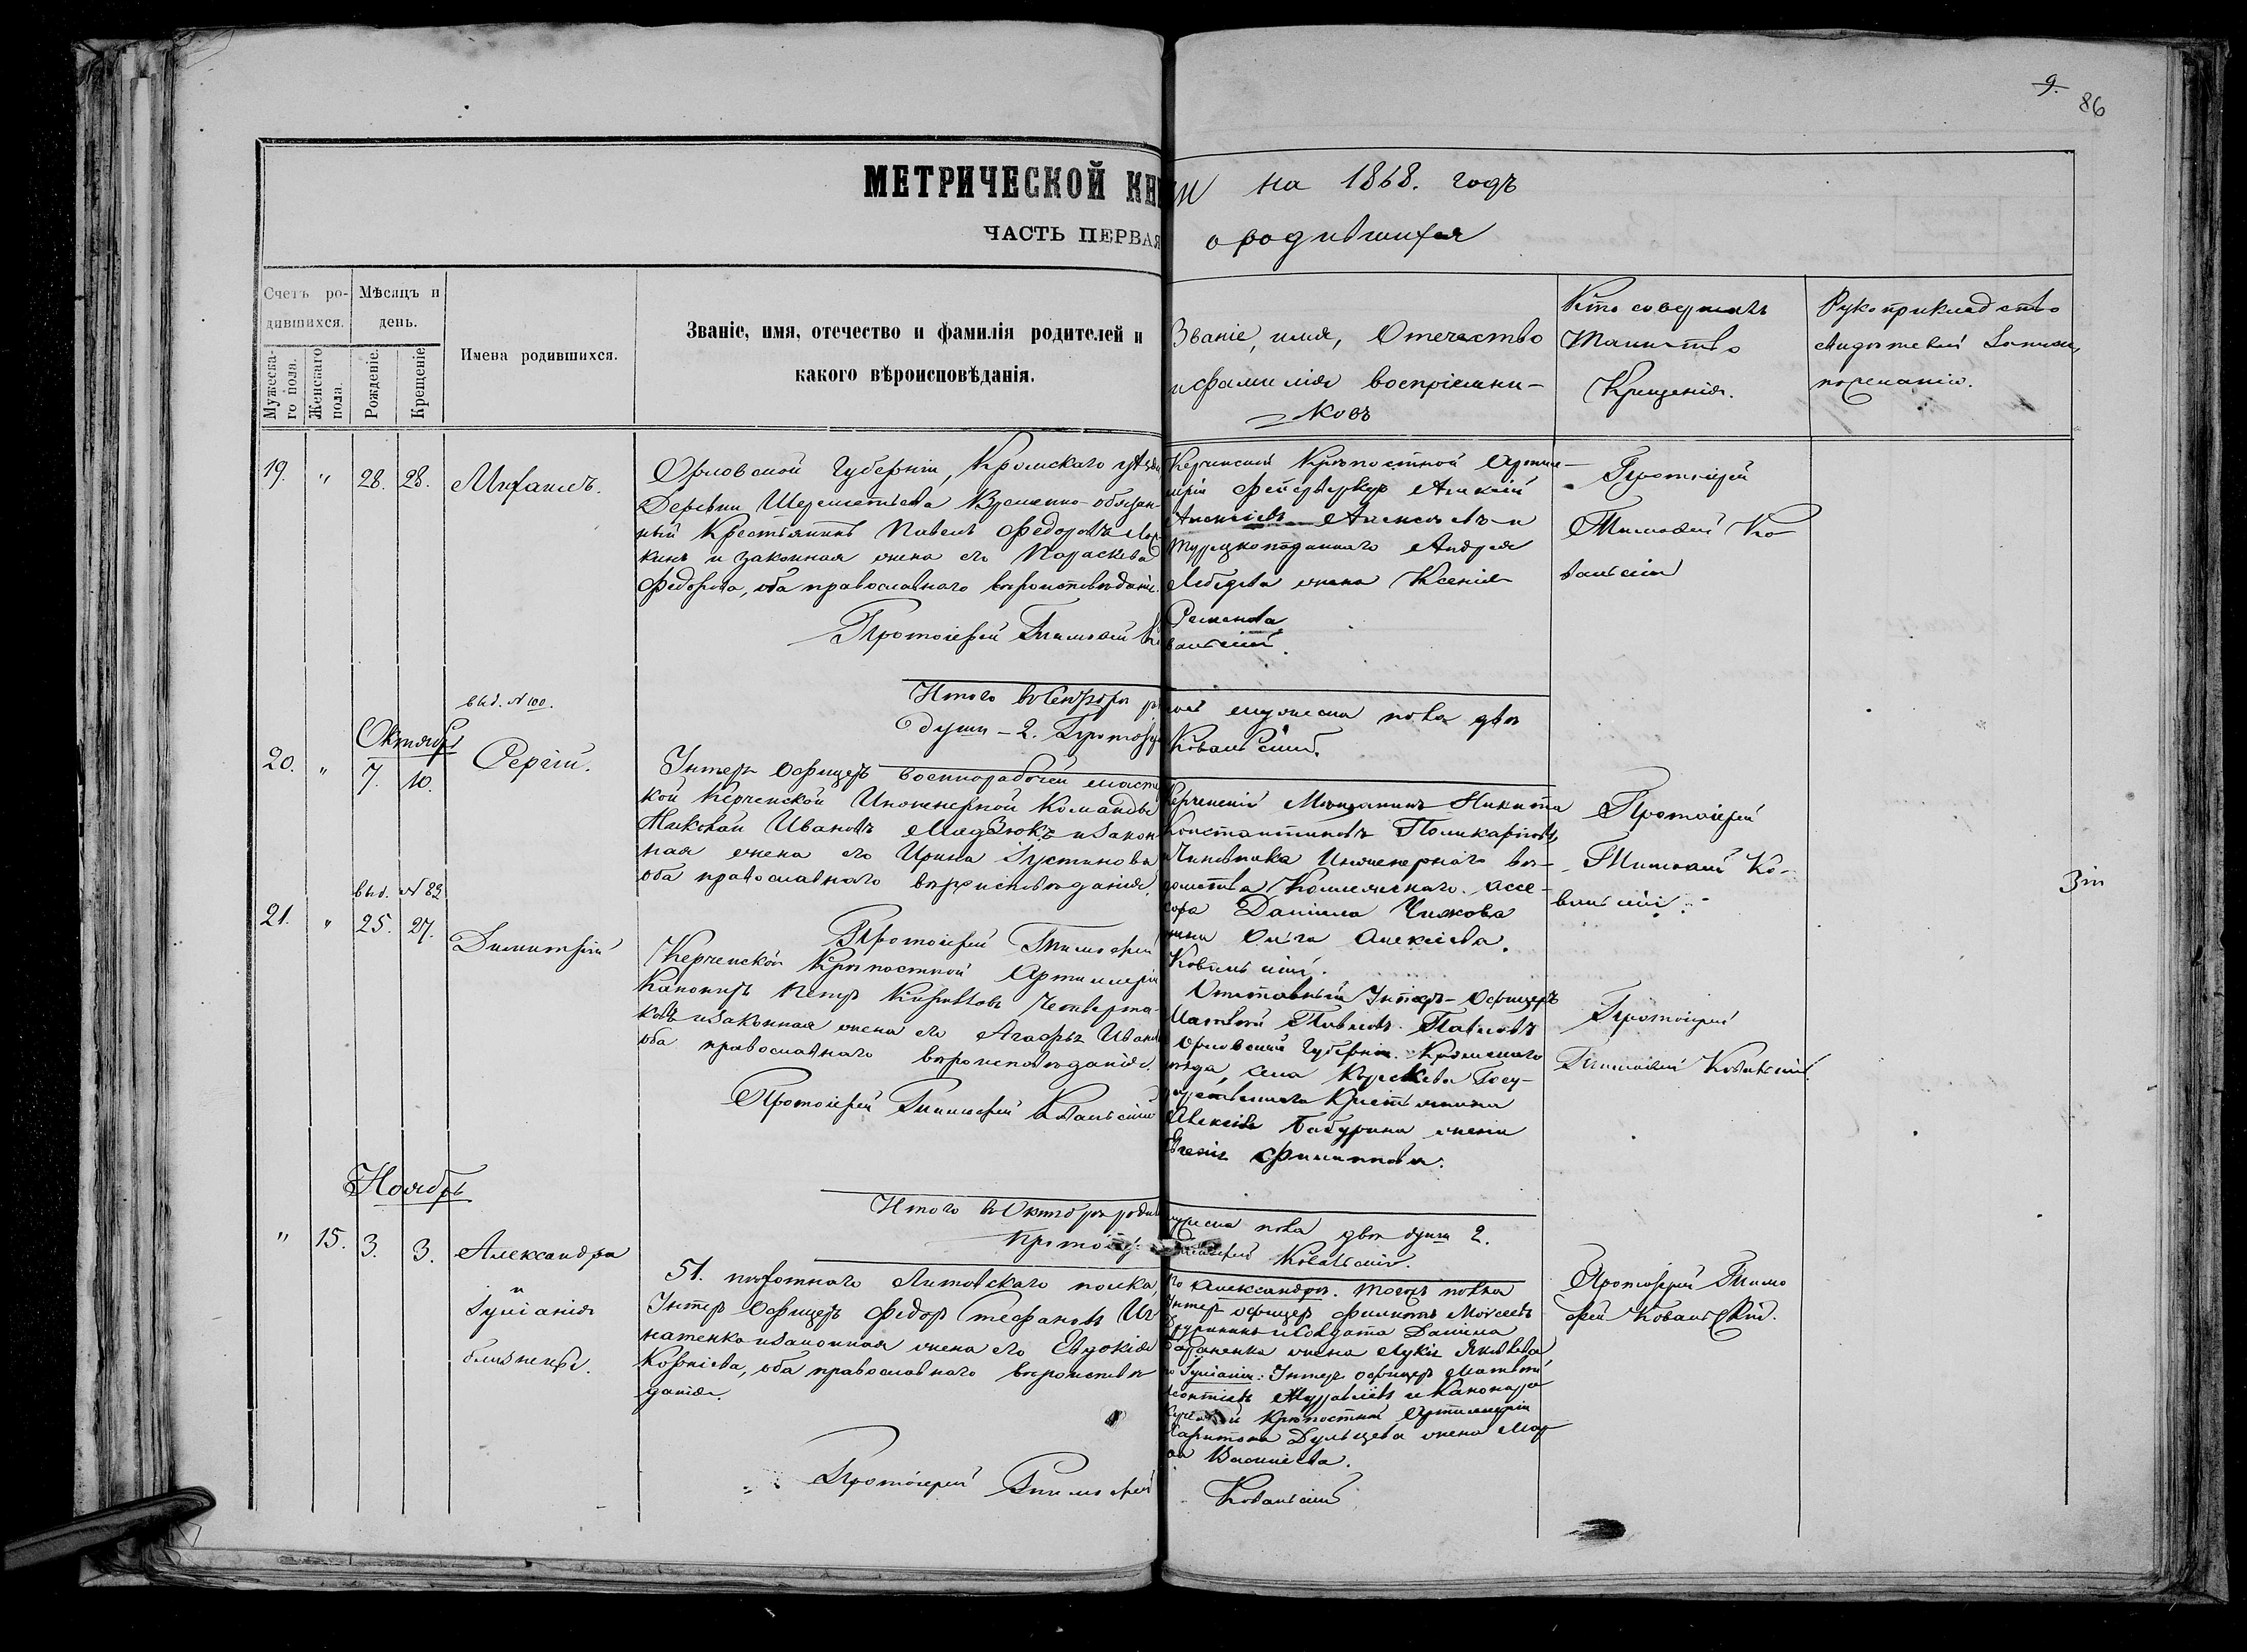 9.
86
МЕТРИЧЕСКОЙ КНИ
ги на 1868. годъ
ЧАСТЬ ПЕРВАЯ
о родившихся
Счетъ ро-
дившихся.
Мужеска-
го пола.
Женскаго
пола.
Мѣсяцъ и
день.
Рожденіе.
Крещеніе
Имена родившихся.
Званіе, имя, отечество и фамилія родителей и
какого вѣроисповѣданія.
Званіе, имя, Отечество
и фамилія воспріемни-
ковъ
Кто совершалъ
Таинство
Крещенія.
Рукоприкладство
свидѣтелей
19. " 28. 28. Михаилъ.
Орловской Губерніи, Кромскаго
Деревни Шереметьева Временно-обязан-
ный Крестьянинъ Павелъ Федоровъ
кинъ и законная жена его Параскева
Федорова, оба православнаго вѣроисповѣданія.
Протоіерей Тимофей
Керченской Крѣпостной Артил-
леріи фейерверкеръ Алексій
Алексѣевъ и
Турецкоподданнаго Андрея
Лебедева жена Ксенія
Семенова
вальскій.
Протоіерей
Тимофей Ко-
вальскій
Итого въ Сентябрѣ
мужеска пола двѣ
души - 2.
Ковальскій.
выд. № 100.
Октябрь
20. " 7. 10. Сергій.
Унтеръ Офицеръ военнорабочей
кой Керченской Инженерной Команды
Ивановъ и закон-
ная жена его Ирина Іустинова
оба православнаго вѣроисповѣданія.
Протоіерей Тимофей
Керченскій Мѣщанинъ Никита
Константиновъ Поликарповъ
Чиновника Инженернаго вѣ-
домства Коллежскаго Ассе-
сора Даніила Чижова
жена Ольга Алексѣева.
Ковальскій.
Протоіерей
Тимофей Ко-
вальскій.
Зт
выд. № 89
21. " 25. 27. Димитрій
Керченской Крѣпостной Артиллеріи
Канониръ Петръ Четверта-
ковъ и законная жена его Агафья
оба православнаго вѣроисповѣданія.
Протоіерей Тимофей Ковальскій
Отставный Унтеръ-Офицеръ
Матвей Павловъ Павловъ
Орловской Губерніи Кромскаго
уѣзда, села Госу-
дарственнаго Крестьянина
Бабурина жена
Филиппова.
Протоіерей
Тимофей Ковальскій.
Ноябрь
Итого въ Октябрѣ
мужеска пола двѣ души 2.
Ковальскій.
" 15. 3. 3. Александра
и
Іуліанія
близнецы.
51. пѣхотнаго Литовскаго полка,
Унтеръ Офицеръ Федоръ Стефановъ Иг
натенко и законная жена его Евдокія
оба православнаго вѣроисповѣ
данія.
Протоіерей Тимофей
Александры. Тогожъ полка
Унтеръ офицеръ Филиппъ Моисеевъ
и Солдата Даніила
жена Яковлева
Іуліаніи: Унтеръ офицеръ Матвей
Журавлевъ и Канонира
Крѣпостной Артиллеріи
Харитона жена Мар
Васильева.
Ковальскій
Протоіерей Тимо
фей Ковальскій.